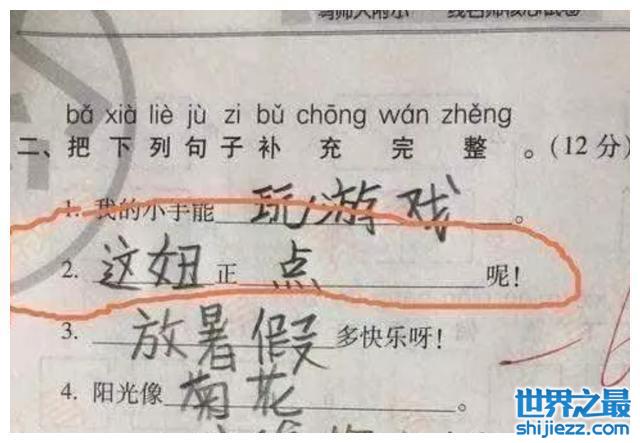 bǎ xià liè jù zi bǔ chōng wán zhěng
二、把下列句子补充完整。(12分)
1. 我的小手能玩游戏。
2. 这妞正点呢!
3. 放暑假多快乐呀!
4. 阳光像菊花。
世界之最
www.shijiezz.com